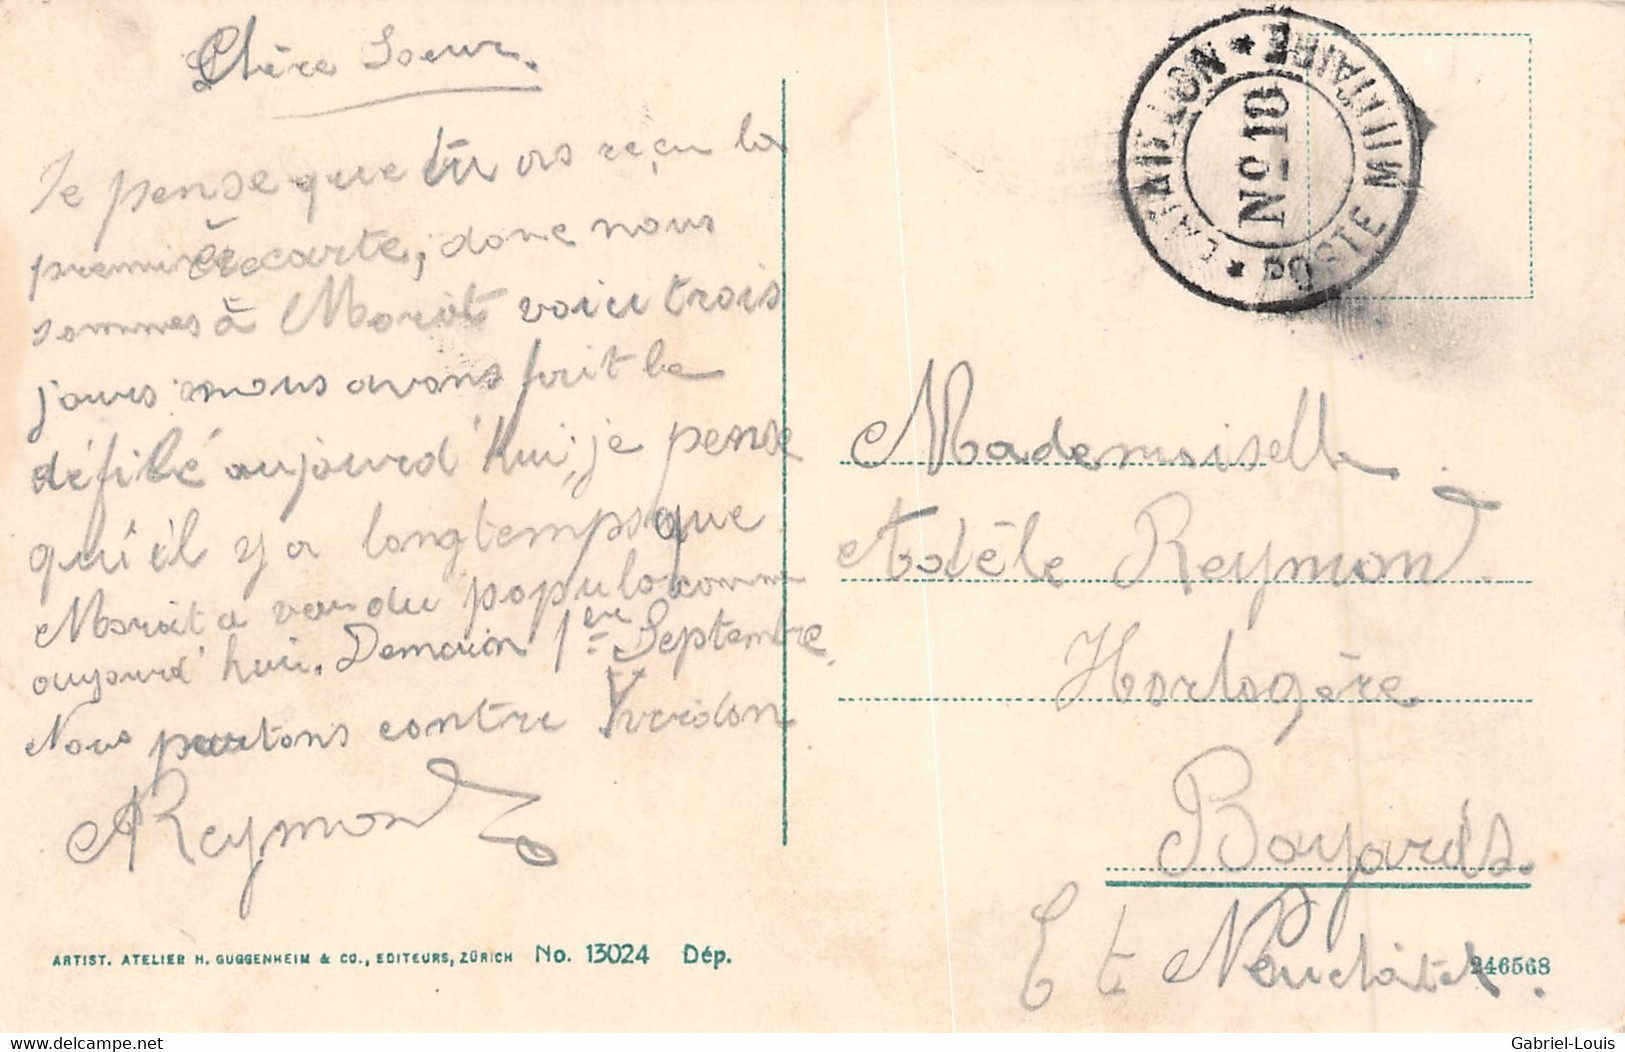 Chère Soeur.
Je pense que tu as reçu la
première carte, donc nous
sommes à Morat voici trois
jours nous avons fait le
défilé aujourd'hui, je pense
qu'il y a longtemps que
Morat a vu du populo comm
aujourd'hui. Demain 1er Septembre
Nous partons contre Yverdon
AReymond
ARTIST. ATELIER H. GUGGENHEIM & CO., EDITEURS, ZÜRICH No. 13024 Dép.
POSTE MILITAIRE
No 18
Mademoiselle
Adèle Reymond
Horlogère
Bayards.
Ct Neuchâtel.
246568
Gabriel-Louis